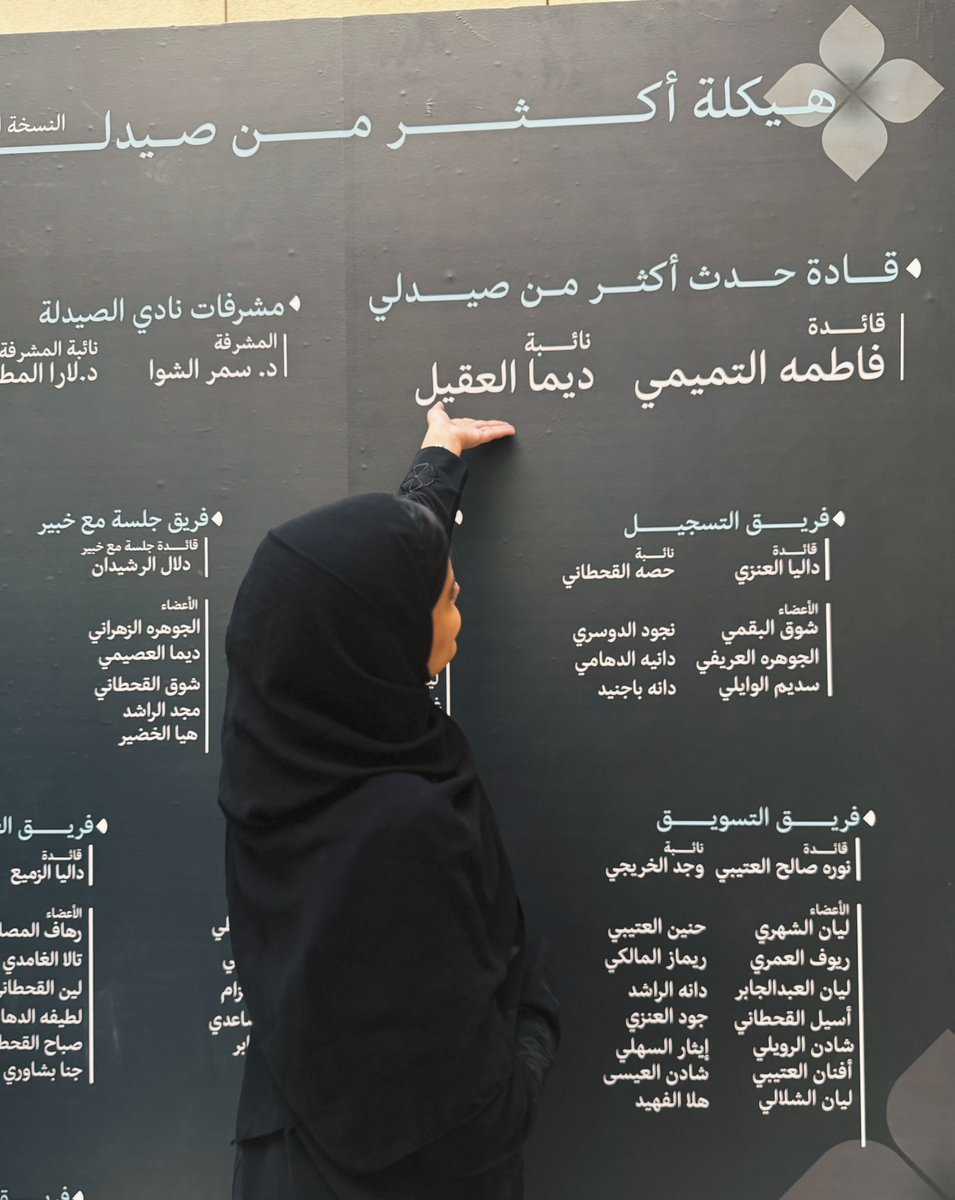 هيكلة أكثر من صيدلـ
النسخة
قادة حدث أكثر من صيدلي
قائدة
فاطمه التميمي
نائبة
ديما العقيل
مشرفات نادي الصيدلة
المشرفة
د. سمر الشوا
نائبة المشرفة
د.لارا
فريق التسجيل
قائدة
داليا العنزي
نائبة
حصه القحطاني
الأعضاء
شوق البقمي
الجوهره العريفي
سديم الوايلي
نجود الدوسري
دانيه الدهامي
دانه باجنيد
فريق جلسة مع خبير
قائدة جلسة مع خبير
دلال الرشيدان
الأعضاء
الجوهره الزهراني
ديما العصيمي
شوق القحطاني
مجد الراشد
هيا الخضير
فريق التسويق
قائدة
نوره صالح العتيبي
نائبة
وجد الخريجي
الأعضاء
ليان الشهري
ريوف العمري
ليان العبدالجابر
أسيل القحطاني
شادن الرويلي
أفنان العتيبي
ليان الشلالي
حنين العتيبي
ريماز المالكي
دانه الراشد
جود العنزي
إيثار السهلي
شادن العيسى
هلا الفهيد
فريق
قائدة
داليا الزميع
الأعضاء
رهاف
تالا الغامدي
لين القحطاني
لطيفه
صباح
جنا بشاوري